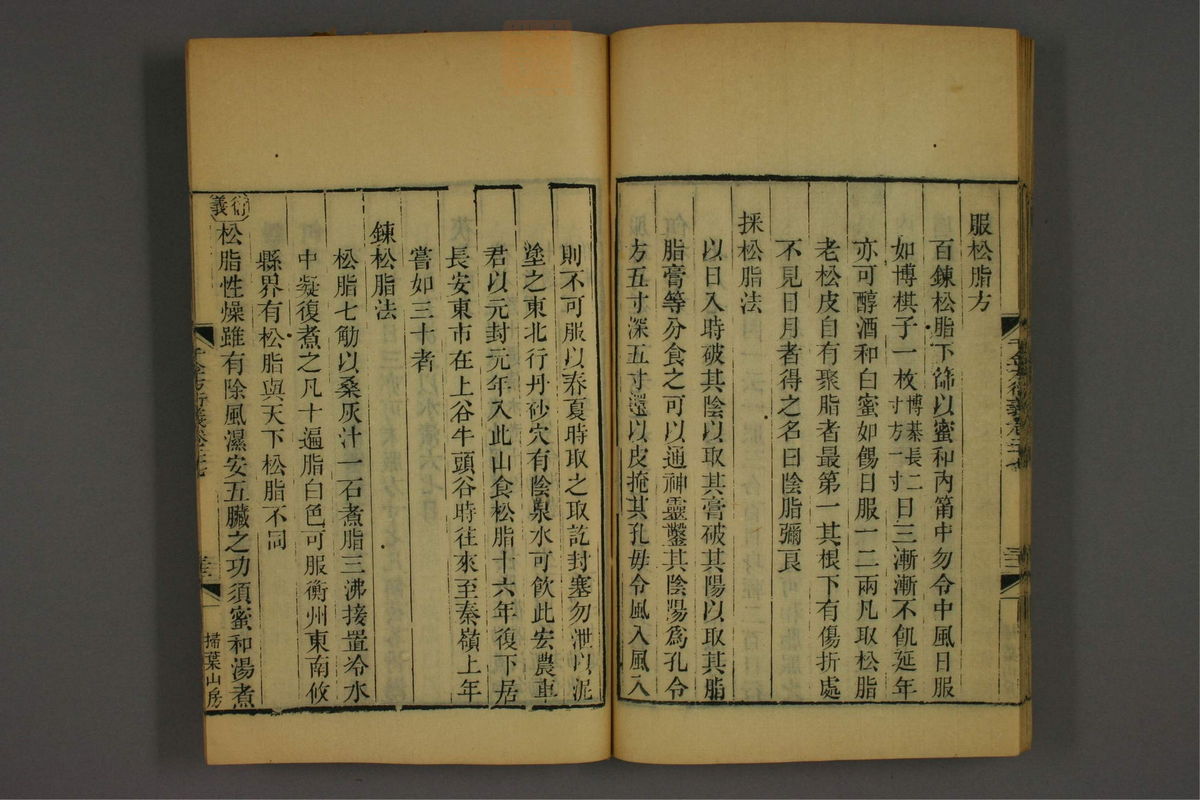 服松脂方
百鍊松脂下篩以蜜和內筩中勿令中風日服
如博棋子一枚博棊長二寸方一寸日三漸漸不飢延年
亦可醇酒和白蜜如餳日服一二兩凡取松脂
老松皮自有聚脂者最第一其根下有傷折處
不見日月者得之名曰陰脂彌良
採松脂法
以日入時破其陰以取其膏破其陽以取其脂
脂膏等分食之可以通神靈鑿其陰陽為孔令
方五寸深五寸還以皮掩其孔毋令風入風入
則不可服以春夏時取之取訖封塞勿泄以泥
塗之東北行丹砂穴有陰泉水可飲此宏農車
君以元封元年入此山食松脂十六年復下居
長安東市在上谷牛頭谷時往來至秦嶺上年
嘗如三十者
鍊松脂法
松脂七觔以桑灰汁一石煮脂三沸接置冷水
中凝復煮之凡十遍脂白色可服衡州東南攸
縣界有松脂與天下松脂不同
衍義松脂性燥雖有除風濕安五臟之功須蜜和湯煮
千金方衍義卷二十七
掃葉山房